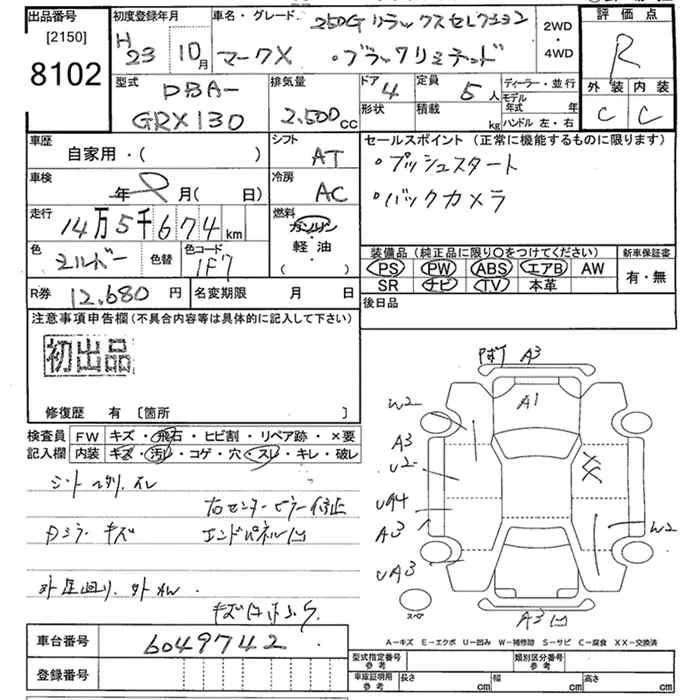 出品番号
[2150]
8102
初度登録年月
H 23 10月
車名・グレード
250G リラックスセレクション
マークX ・ブラックリミテッド
2WD
・
4WD
評価点
R
外装 内装
C C
型式
DBA-
GRX130
排気量
2,500cc
ドア 4
形状
定員 5人
積載 kg
ディーラー・並行
モデル年式 年
ハンドル 左・右
車歴
自家用・( )
シフト
AT
セールスポイント (正常に機能するものに限ります)
・プッシュスタート
・バックカメラ
車検
年 月( 日)
冷房
AC
走行
14万5千674km
燃料
ガソリン
軽油
( )
色
シルバー
色替
色コード
1F7
装備品 (純正品に限り○をつけてください)
PS PW ABS エアB AW
SR ナビ TV 本革
新車保証書
有・無
R券 12,680円
名変期限 月 日
後日品
注意事項申告欄(不具合内容等は具体的に記入して下さい)
初出品
修復歴 有 [箇所 ]
検査員
記入欄
FW キズ・飛石・ヒビ割・リペア跡・×要
内装 キズ・汚レ・コゲ・穴・スレ・キレ・破レ
右センターピラー修正
Dミラーキズ エンドパネル凹
A3
A1
W2
A3
U2
A3
UA3
W2
A3凹
スペア
A-キズ E-エクボ U-凹み W-補修跡 S-サビ C-腐食 XX-交換済
車台番号
6049742
登録番号
型式指定番号
参考
類別区分番号
参考
車庫証明用
参考
長さ cm
幅 cm
高さ cm